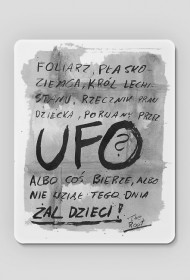 FOLIARZ, PŁASKO-
ZIEMCA, KRÓL LECHI-
STANU, RZECZNIK PRAW
DZIECKA, PORWANY PRZEZ
UFO?
ALBO COŚ BIERZE, ALBO
NIE WZIĄŁ TEGO DNIA
ŻAL DZIECI!